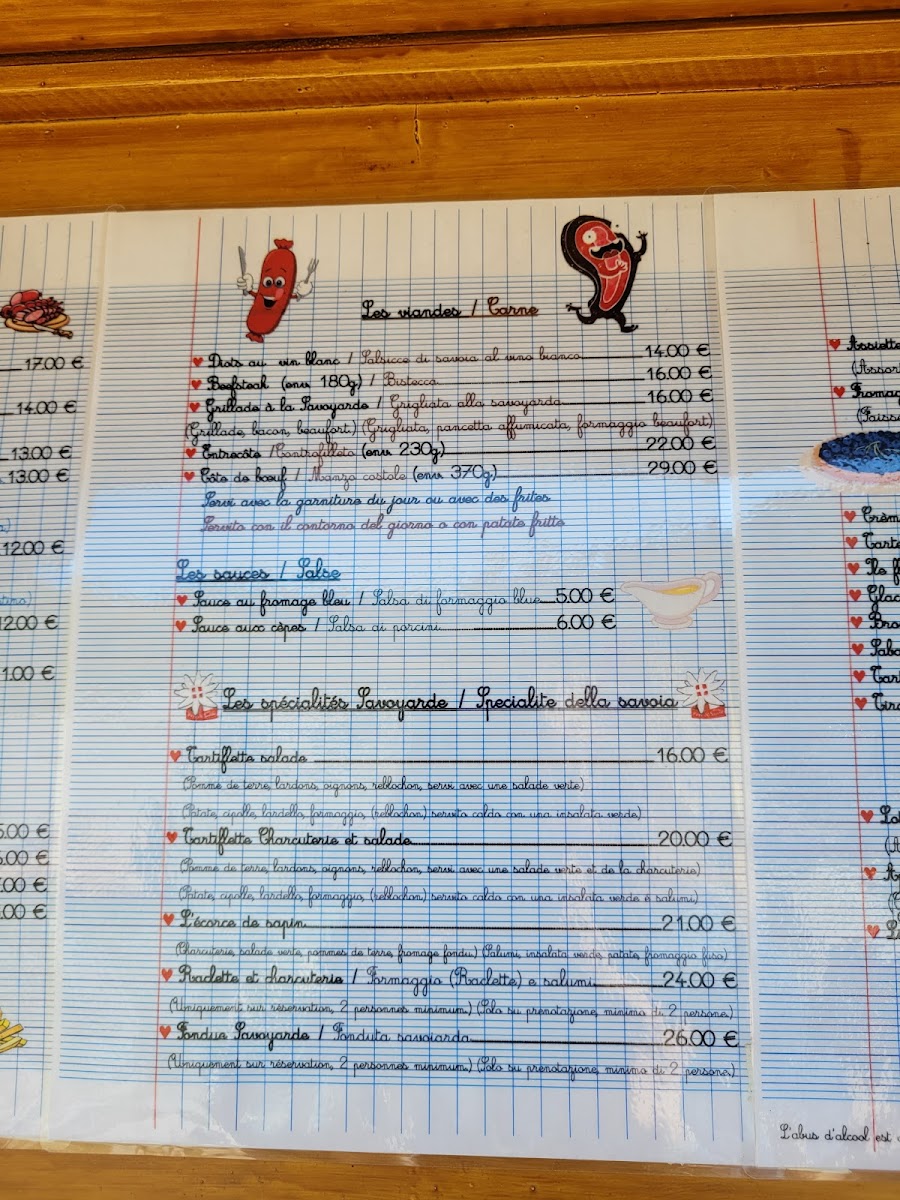 17.00 €
14.00 €
13.00 €
13.00 €
12.00 €
12.00 €
1.00 €
5.00 €
.00 €
.00 €
Les viandes / Carne
Diots au vin blanc / Salsicce di savoia al vino bianco 14.00 €
Beefsteak (env 180g) / Bistecca 16.00 €
Grillade à la Savoyarde / Grigliata alla savoyarda 16.00 €
(Grillade, bacon, beaufort) (Grigliata, pancetta affumicata, formaggio beaufort)
Entrecôte / Controfileto (env 230g) 22.00 €
Côte de boeuf / Manzo costole (env 370g) 29.00 €
Servi avec la garniture du jour ou avec des frites
Servito con il contorno del giorno o con patate fritte
Les sauces / Salse
Sauce au fromage bleu / Salsa di formaggio blue 5.00 €
Sauce aux cèpes / Salsa di porcini 6.00 €
Les spécialités Savoyarde / Specialite della savoia
Tartiflette salade 16.00 €
(Pomme de terre, lardons, oignons, reblochon, servi avec une salade verte)
(Patate, cipolle, lardello, formaggio, (reblochon) servito caldo con una insalata verde)
Tartiflette Charcuterie et salade 20.00 €
(Pomme de terre, lardons, oignons, reblochon, servi avec une salade verte et de la charcuterie)
(Patate, cipolle, lardello, formaggio, (reblochon) servito caldo con una insalata verde è salumi)
L'écorce de sapin 21.00 €
(Charcuterie, salade verte, pommes de terre, fromage fondu) (Salumi, insalata verde, patate, fromaggio fuso)
Raclette et charcuterie / Formaggio (Raclette) e salumi 24.00 €
(Uniquement sur réservation, 2 personnes minimum) (Solo su prenotazione, minimo di 2 persone)
Fondue Savoyarde / Fonduta savoiarda 26.00 €
(Uniquement sur réservation, 2 personnes minimum) (Solo su prenotazione, minimo di 2 persone)
Assiette
(Assor
Fromag
(Faisse
Crèm
Tarte
Ile f
Glac
Bro
Tart
L'abus d'alcool est